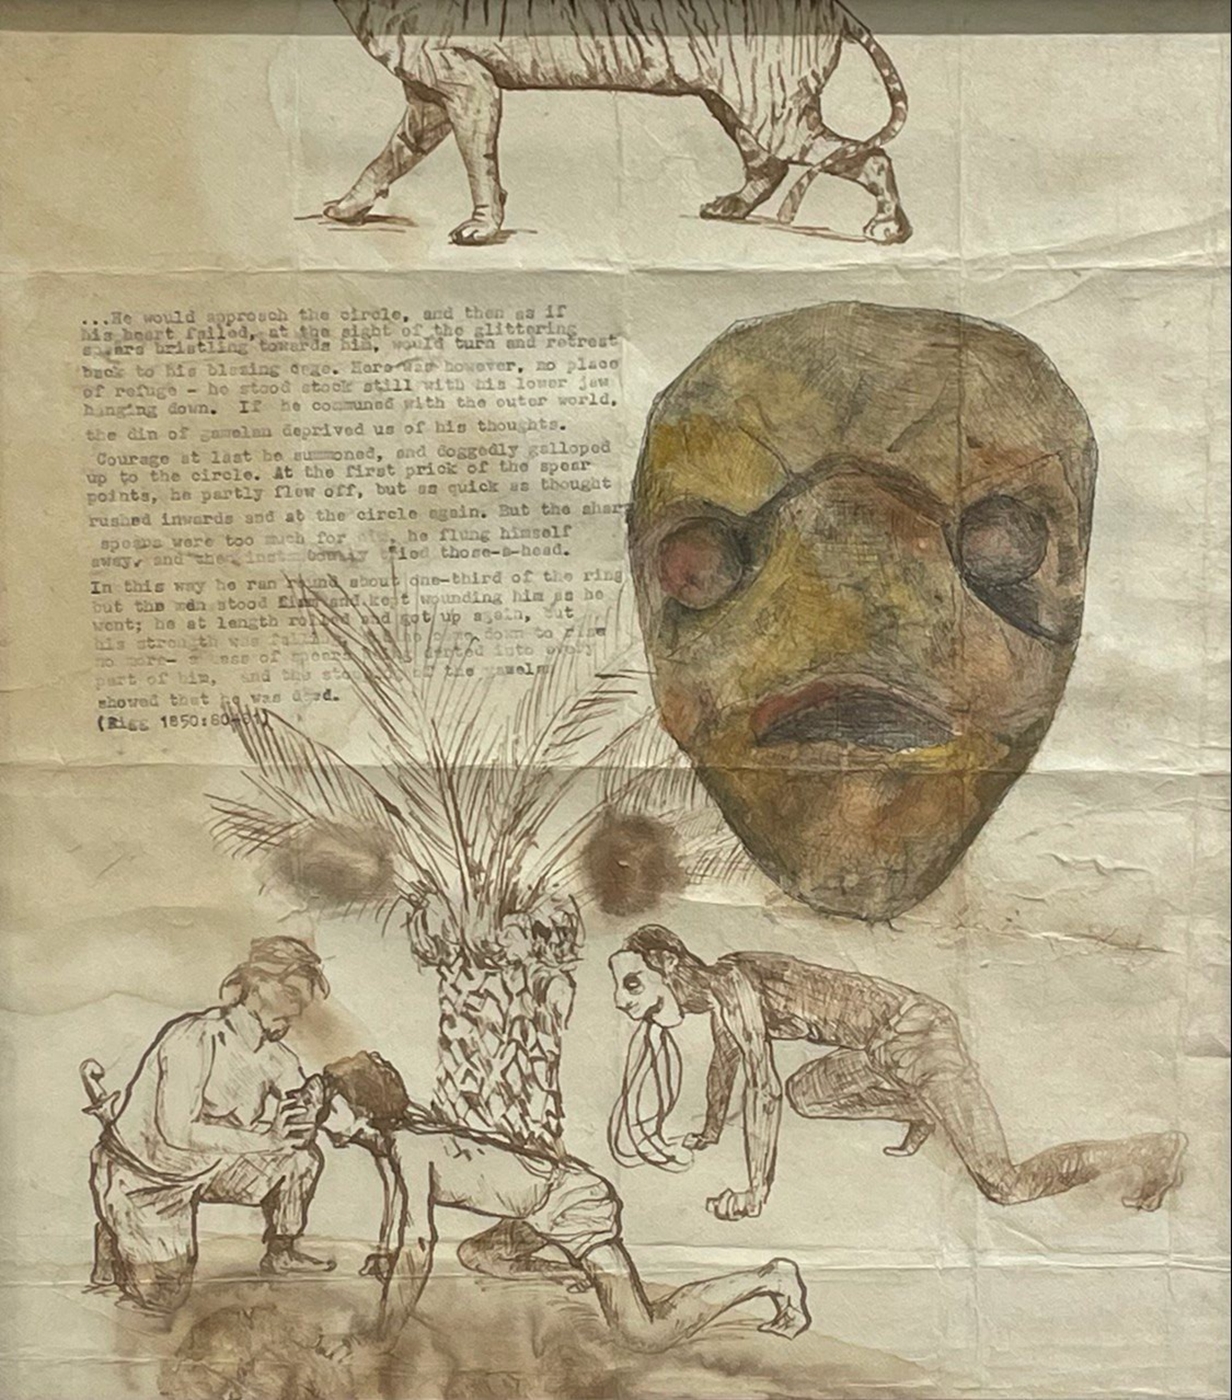 ...He would approach the circle, and then as if
his heart failed, at the sight of the glittering
spears bristling towards him, would turn and retreat
back to his blazing cage. Here was however, no place
of refuge - he stood stock still with his lower jaw
hanging down. If he communed with the outer world,
the din of gamelan deprived us of his thoughts.
Courage at last he summoned, and doggedly galloped
up to the circle. At the first prick of the spear
points, he partly flew off, but as quick as thought
rushed inwards and at the circle again. But the shar
spears were too much for him, he flung himself
away, and then tried those-a-head.
In this way he ran round about one-third of the ring
but the men stood firm and kept wounding him as he
went; he at length rolled and got up again, but
his strength was down to rise
no more- a mass of spears darted into every
part of him, and the stopping of the gamelan
showed that he was dead.
(Rigg 1850:80-81)